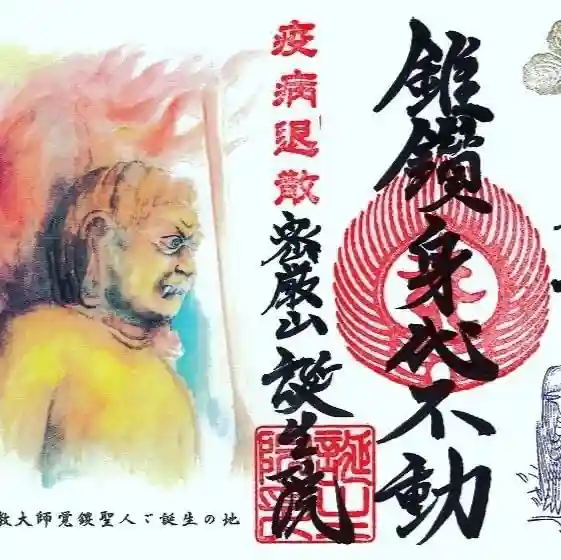 錐鑽身代不動
疫病退散
密厳山誕生院
教大師覚鑁聖人ご誕生の地